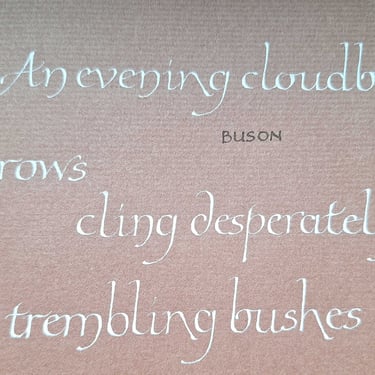 An evening cloudb
BUSON
rows
cling desperately
trembling bushes